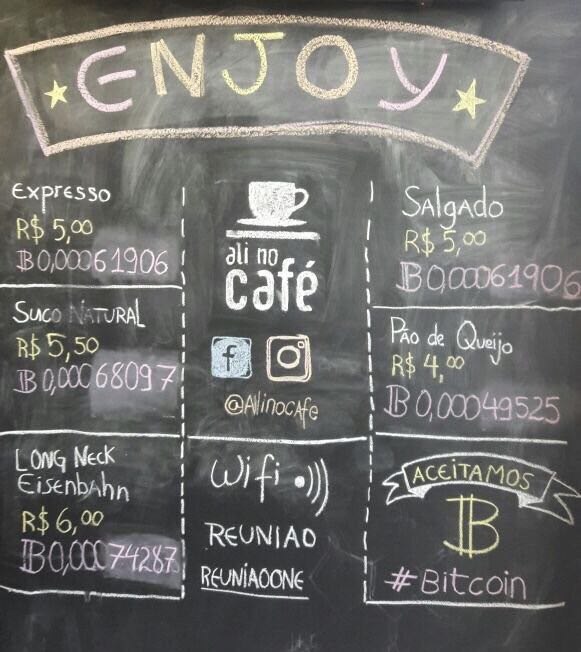 ENJOY
Expresso
R$ 5,00
₿0,00061906
Suco Natural
R$ 5,50
₿0,00068097
Long Neck
Eisenbahn
R$ 6,00
₿0,00074287
ali no
café
f
@Alinocafe
Wifi
REUNIAO
REUNIAOONE
Salgado
R$ 5,00
₿0,00061906
Pão de Queijo
R$ 4,00
₿0,00049525
ACEITAMOS
₿
#Bitcoin